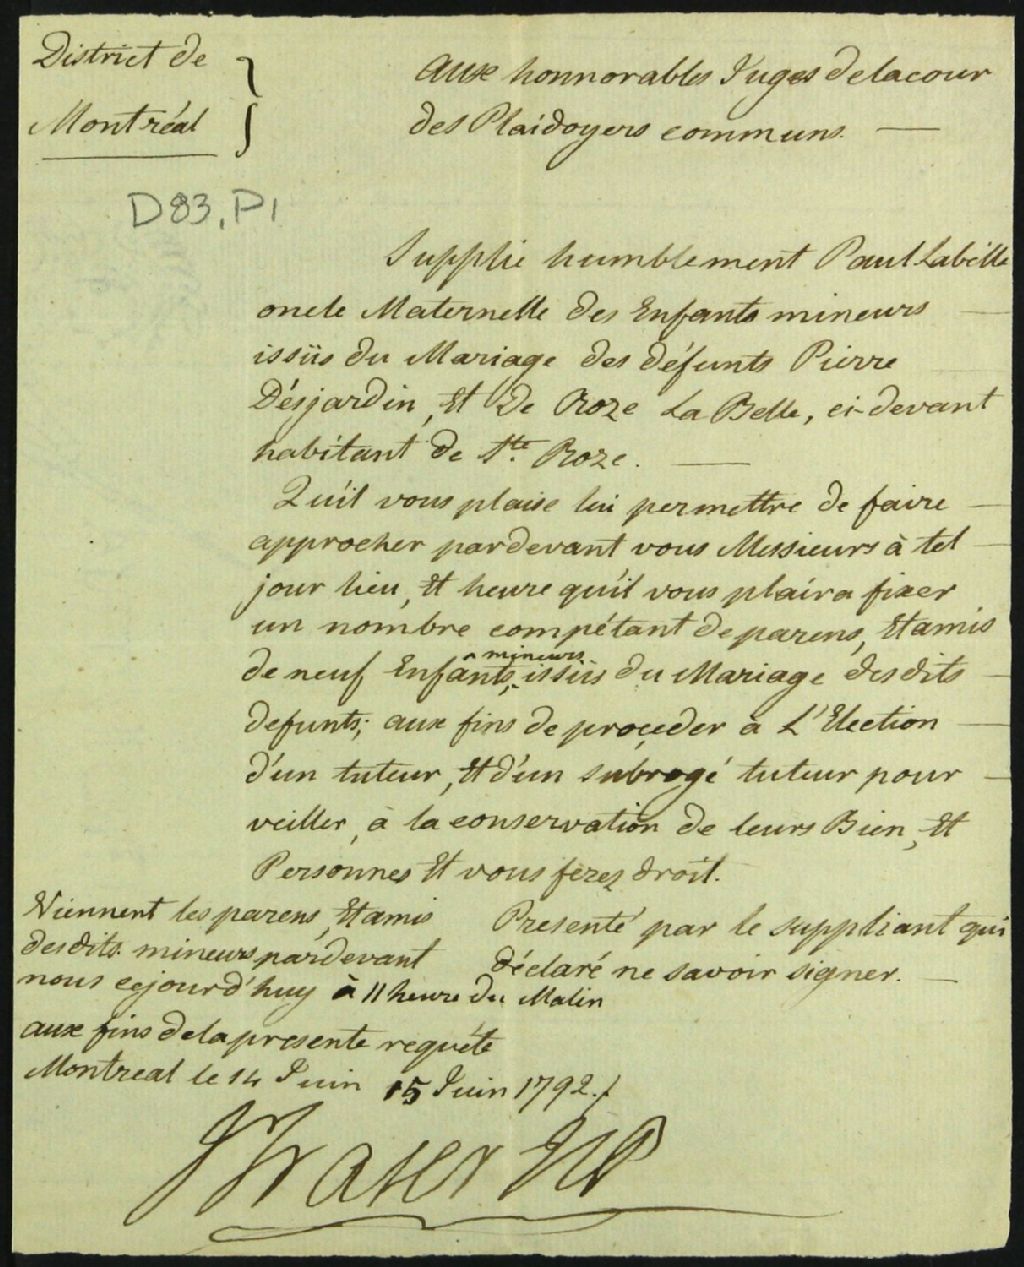 District de
Montréal
aux honnorables Juges delacour
des Plaidoyers communs.
D83, P1
Supplie humblement Paul Labelle
oncle Maternelle des Enfants mineurs
issüs du Mariage des défunts Pierre
Désjardin, Et De Roze La Belle, ci-devant
habitant de Ste. Roze.
Qu'il vous plaise lui permettre de faire
approcher pardevant vous Messieurs à tel
jour lieu, Et heure qu'il vous plaira fixer
un nombre compétant de parens, Et amis
de neuf Enfants, mineurs issüs du Mariage desdits
defunts; aux fins de proçeder à L'Election
d'un tuteur, Et d'un subrogé tuteur pour
veiller, à la conservation de leurs Bien, Et
Personnes Et vous ferez droit.
Viennent les parens, Et amis
desdits mineurs pardevant
nous cejourd'huy à 11 heure du Matin
aux fins delapresente requéte
Montreal le 14 Juin 15 Juin 1792./
Presenté par le suppliant qui
déclaré ne savoir signer.
JFraser JCP